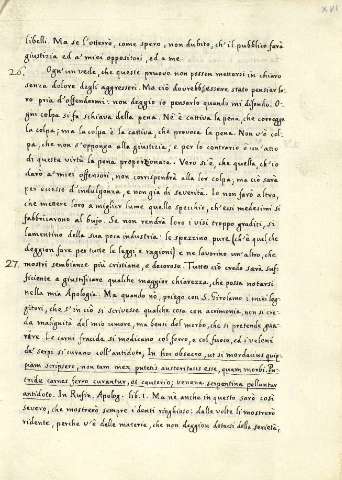 XVI
libelli. Ma se l'otterrò, come spero, non dubito, ch'il pubblico farà
giustizia ed a' miei oppositori, ed a me.
26. Ogn'un vede, che queste pruove non posson mettersi in chiaro
senza dolore degli aggressori. Ma ciò dovrebb'essere stato pensier lo-
ro pria d'offendermi: non deggio io pensarlo quando mi difendo. O-
gni colpa si fa schiava della pena. Nè è cattiva la pena, che corregge
la colpa; ma la colpa è la cattiva, che provoca la pena. Non v'è col-
pa, che non s'opponga alla giustizia; e per lo contrario è un'atto
di questa virtù la pena proporzionata. Vero si è, che quella, ch'io
darò a' miei offensori, non corrisponderà alla lor colpa; ma ciò sarà
per eccesso di indulgenza, e non già di severità. Io non farò altro,
che mettere loro a miglior lume quello specchio, ch'essi medesimi si
fabbricarono al bujo. Se non rendrà loro i visi troppo graditi, si
lamentino della sua poca industria: lo spezzino pure (ch'è quel che
deggion fare per tutte le leggi e ragioni) e ne lavorino un'altro, che
27. mostri sembianze più cristiane, e decorose. Tutto ciò credo sarà suf-
ficiente a giustificare qualche maggior chiarezza, che possa notarsi
nella mia Apologia. Ma quando no, priego con S. Girolamo i miei leg-
gitori, che s'in ciò si scrivesse qualche cosa con acrimonia, non si cre-
da malignità del mio umore, ma bensì del morbo, che si pretende gua-
rire. Le carni fracide si medicano col ferro, e col fuoco, ed i veleni
da' serpi si curano coll'antidoto. In hoc obsecro, ut si mordacius quip-
piam scripsero, non tam mex putetis austeritatis esse, quam morbi. Pu-
tridæ carnes ferro curantur, et cauterio; venena serpentina pelluntur
antidoto. In Rufin. Apolog. lib. 1. Ma nè anche in questo sarò così
severo, che mostrerò sempre i denti ringhiosi: dalle volte li mostrerò
ridente, perchè v'è delle materie, che non deggion dotarsi della serietà,